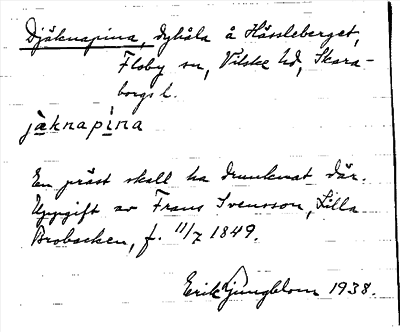 Djäknapina, dyhåla å Hässleberget,
Floby sn, Vilske hd, Skara-
borgs l.
jäknapìna
En präst skall ha drunknat där.
Uppgift av Frans Svensson, Lilla
Brobacken, f. 11/7 1849.
Erik Ljungblom 1938.